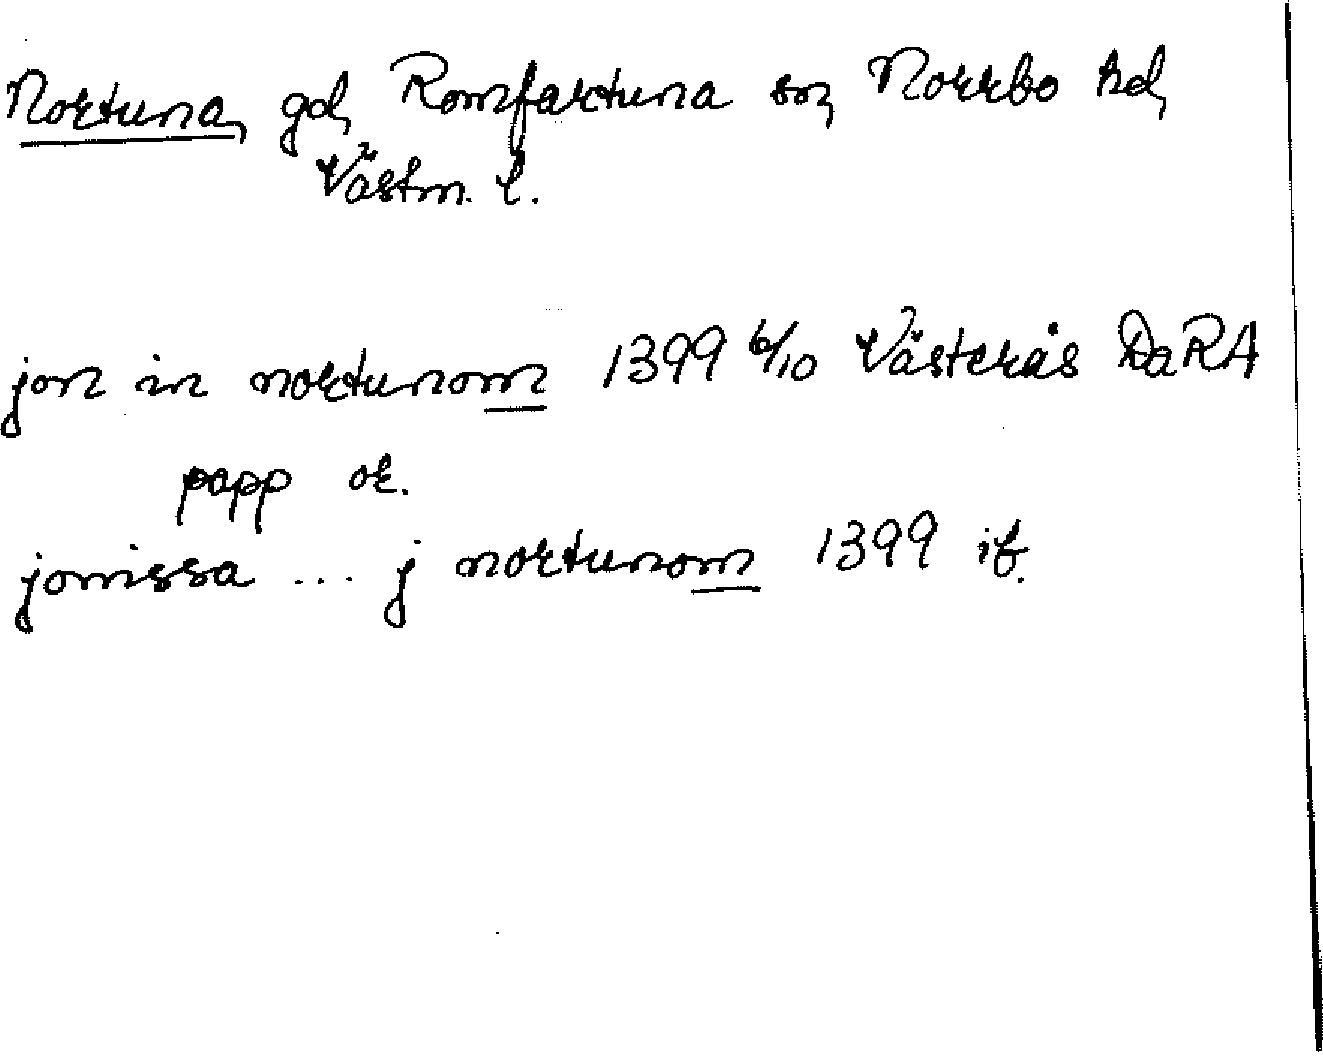 Nortuna, gd, Romfartuna sn, Norrbo hd,
Västm. l.
jon in nortunom 1399 6/10 Västerås DaRA
papp or.
jonissa ... j nortunom 1399 ib.